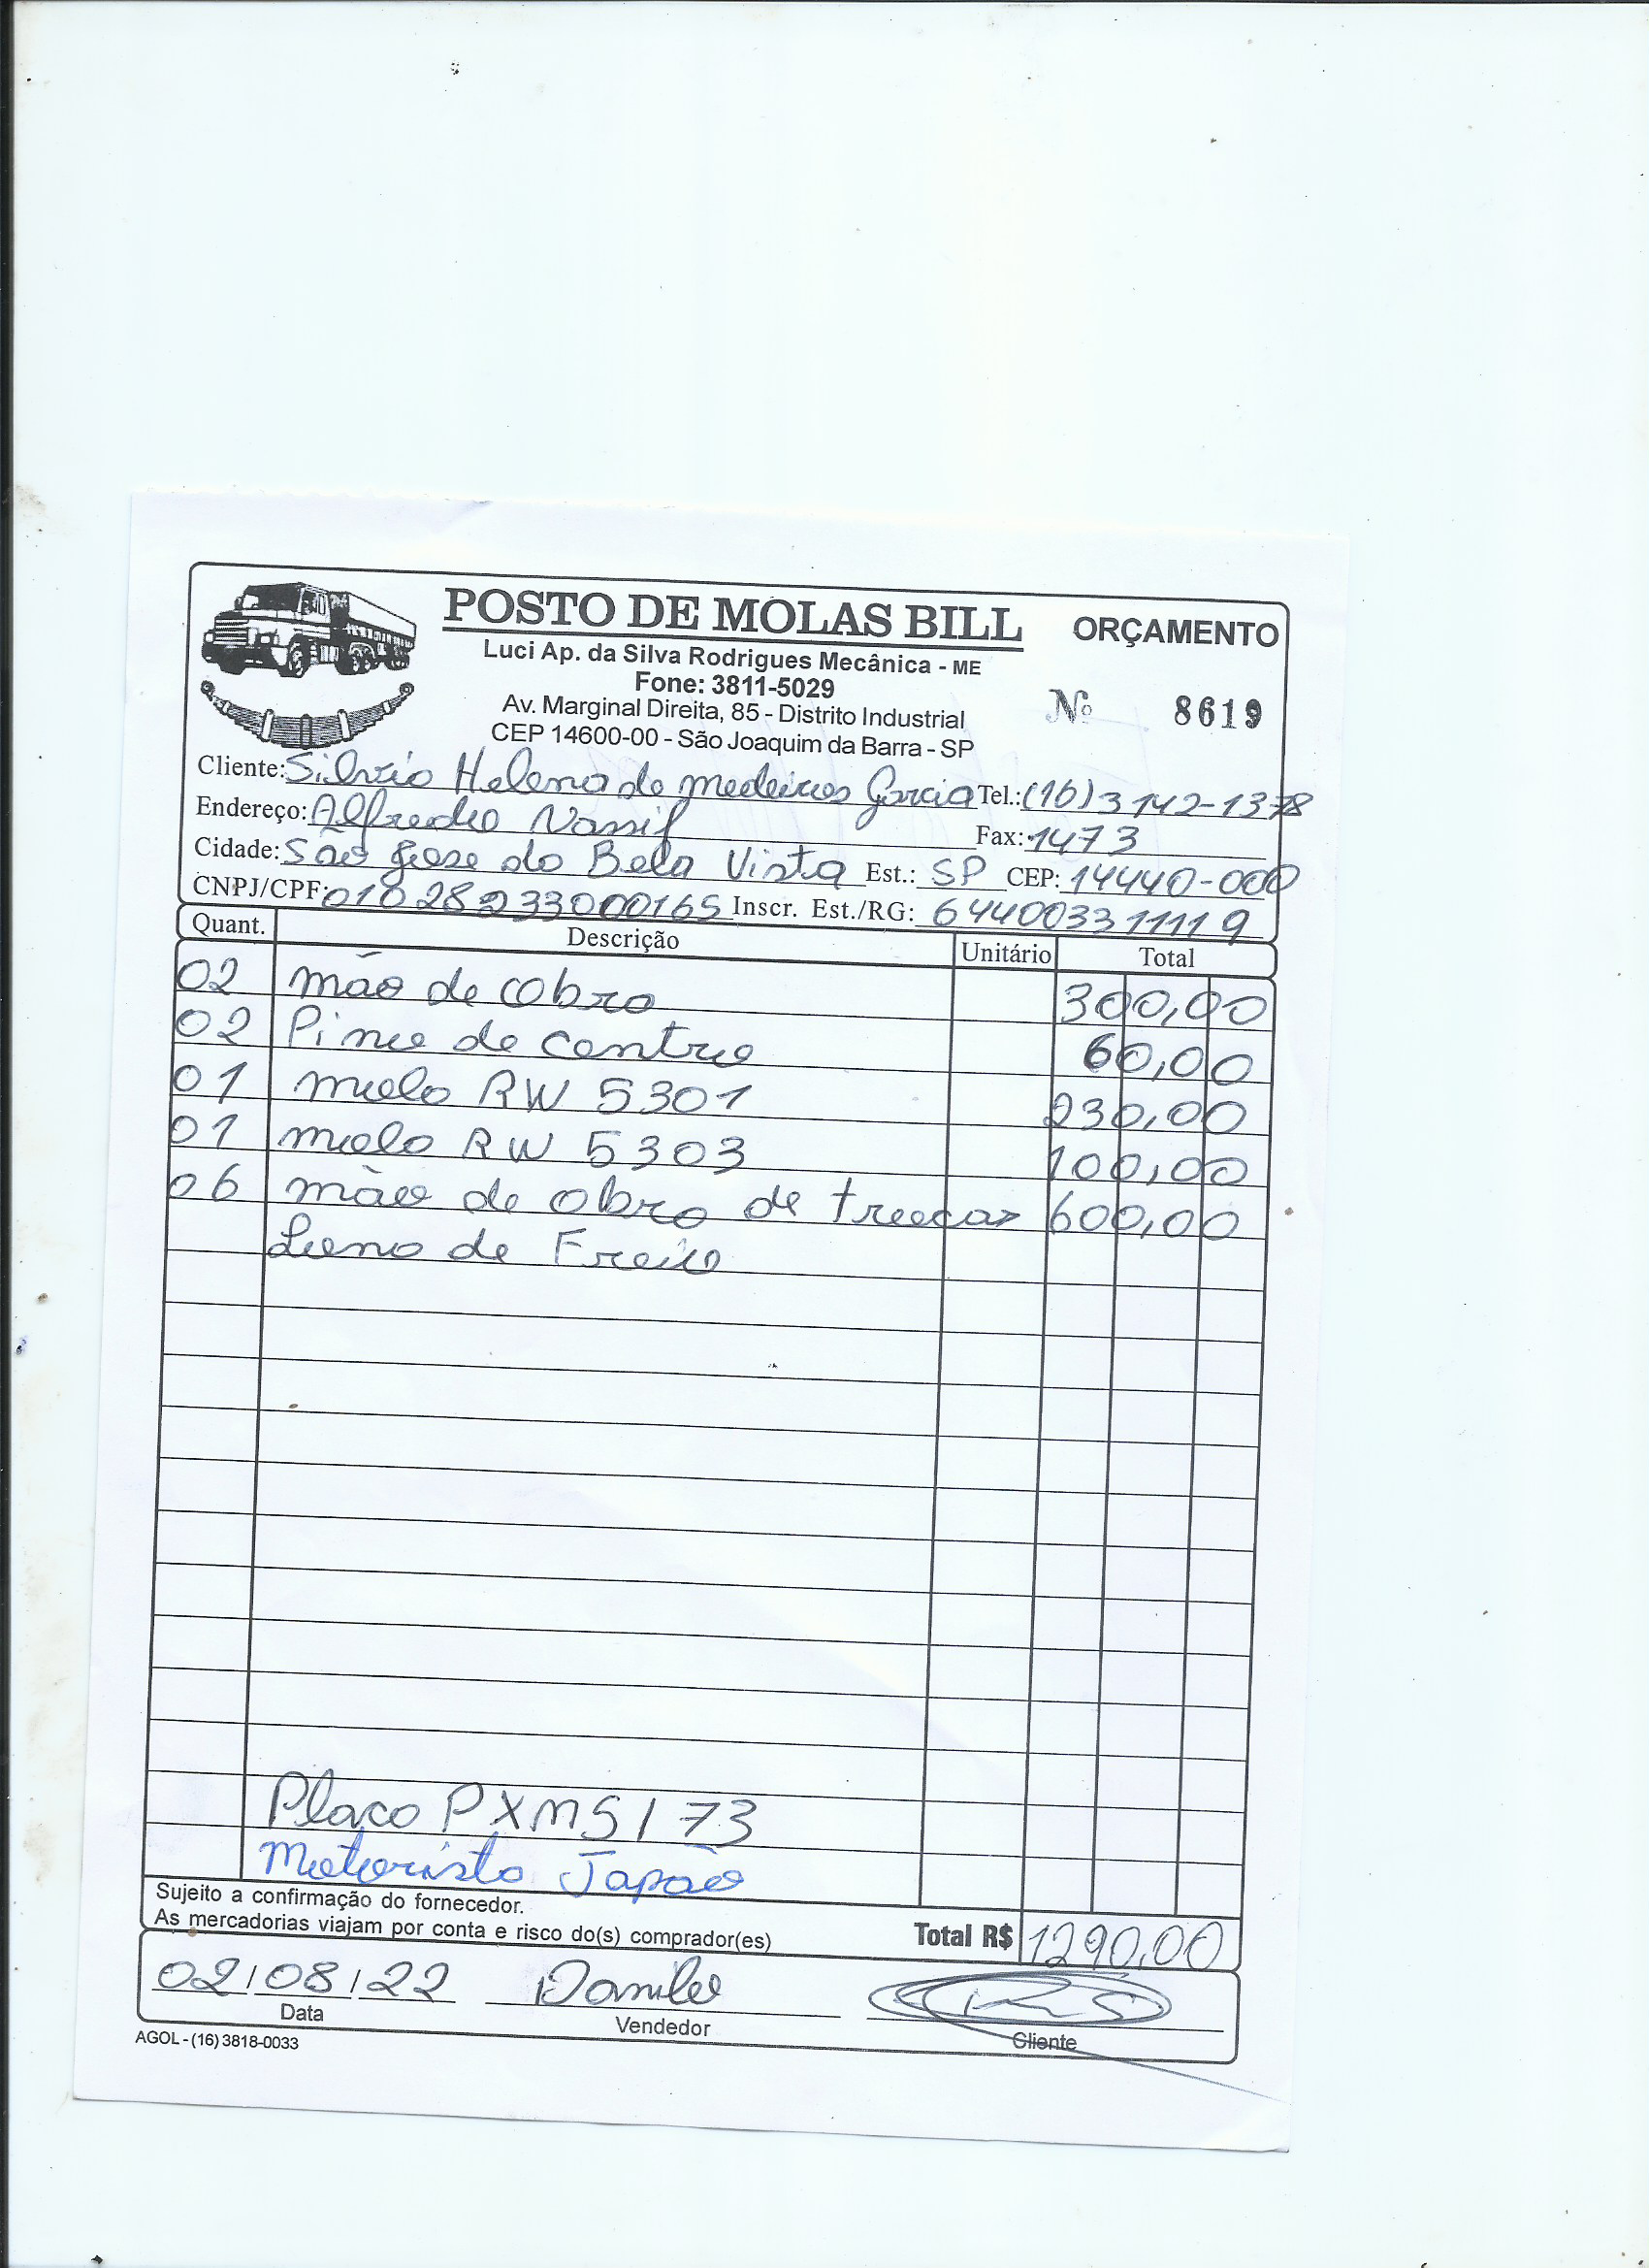 POSTO DE MOLAS BILL
ORÇAMENTO
Luci Ap. da Silva Rodrigues Mecânica - ME
Fone: 3811-5029
Av. Marginal Direita, 85 - Distrito Industrial
Nº 8619
CEP 14600-00 - São Joaquim da Barra - SP
Cliente: Silvio Helena de medeiros Garcia Tel.: (16) 3142-1378
Endereço: Alfredo Nassif Fax: 1473
Cidade: São Jose da Bela Vista Est.: SP CEP: 14440-000
CNPJ/CPF: Inscr. Est./RG: 644003311119
Quant. Descrição Unitário Total
02 mão de obra 300,00
02 Pino de centro 60,00
01 mola RW 5301 230,00
01 mola RW 5303 100,00
06 mão de obra de trocar 600,00
Lona de Freio
Placa PXM5173
Motorista Japão
Sujeito a confirmação do fornecedor.
As mercadorias viajam por conta e risco do(s) comprador(es)
Total R$ 1290,00
02/08/22 Danilo
Data Vendedor Cliente
AGOL - (16) 3818-0033